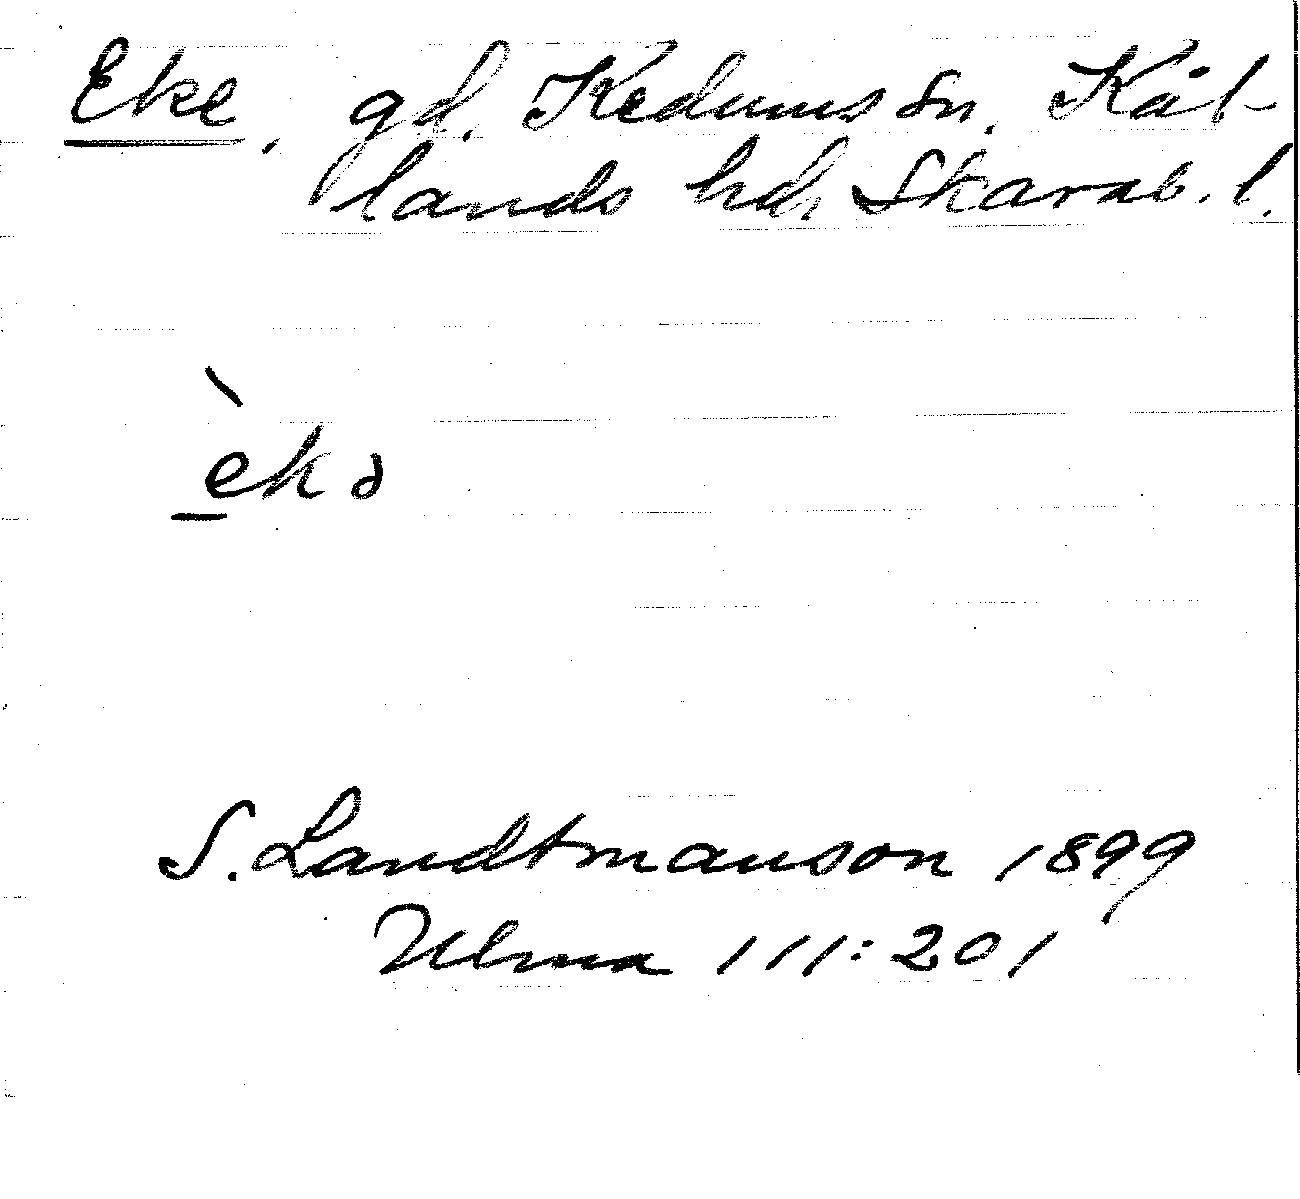 Eke, gd. Kedums sn. Kål-
lands hd, Skarab. l.
èkə
S. Landtmanson 1899
Ulma 111:201